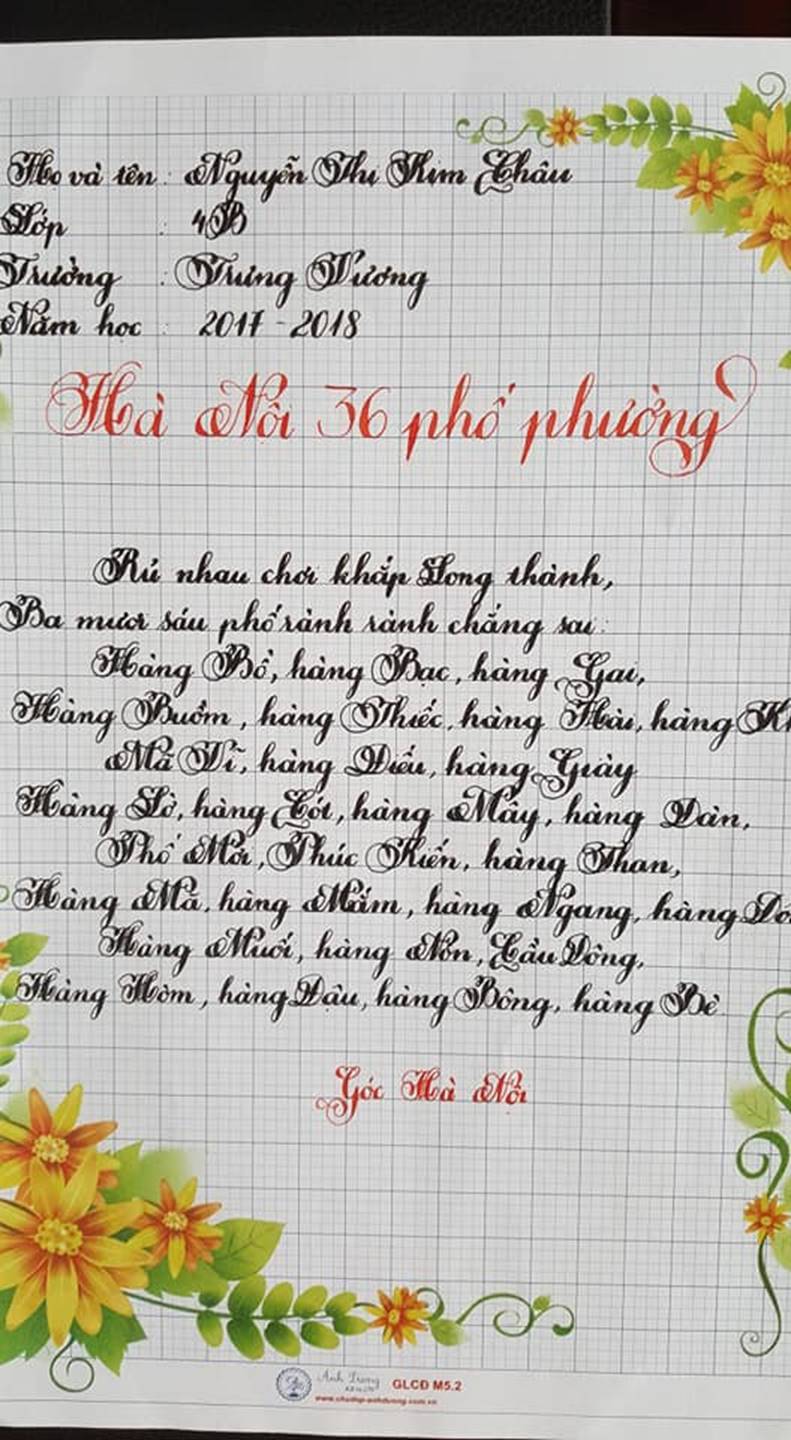 Họ và tên : Nguyễn Thị Kim Châu
Lớp : 4B
Trường : Trưng Vương
Năm học : 2017 - 2018
Hà Nội 36 phố phường
Rủ nhau chơi khắp Long thành,
Ba mươi sáu phố rành rành chẳng sai:
Hàng Bồ, hàng Bạc, hàng Gai,
Hàng Buồm, hàng Thiếc, hàng Hài, hàng
Mã Vĩ, hàng Điếu, hàng Giày
Hàng Lờ, hàng Cót, hàng Mây, hàng Đàn,
Phố Mới, Phúc Kiến, hàng Than,
Hàng Mã, hàng Mắm, hàng Ngang, hàng
Hàng Muối, hàng Nón, Cầu Đông,
Hàng Hòm, hàng Đậu, hàng Bông, hàng Bè
Góc Hà Nội
GLCĐ M5.2